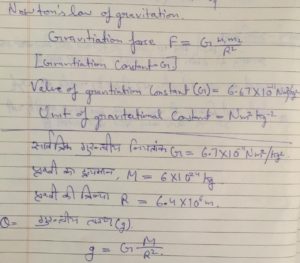 Newton's law of gravitation
Gravitiation force F = G m₁m₂/R²
[Gravitiation Constant=G]
Value of gravitiation Constant (G) = 6.67×10⁻¹¹ Nm²/kg²
Unit of gravitational Constant = Nm² kg⁻²
सार्वत्रिक गुरुत्वीय नियतांक G = 6.7×10⁻¹¹ Nm²/kg²
पृथ्वी का द्रव्यमान, M = 6×10²⁴ kg
पृथ्वी की त्रिज्या R = 6.4×10⁶ m.
Q= गुरुत्वीय त्वरण (g)
g = G M/R².